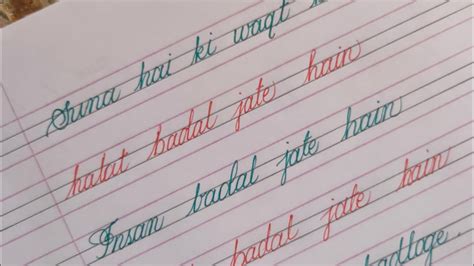 Suna hai ki waqt
halat badal jate hain
Insan badal jate hain
badal jate hain